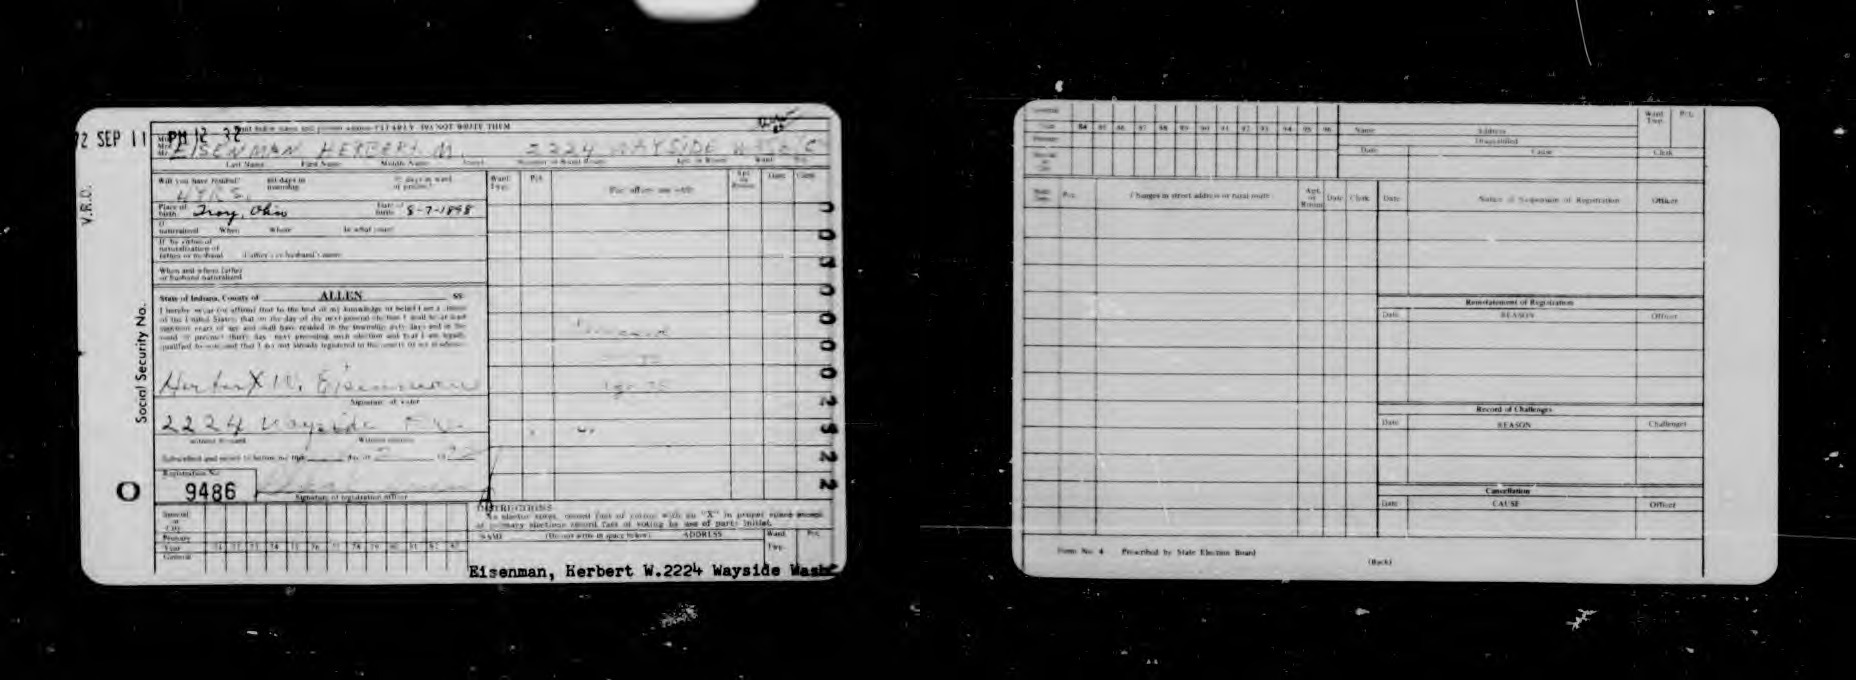 72 SEP 11 PM 12 32
Print below name and present address CLEARLY DO NOT WRITE THEM
EISENMAN HERBERT 2224 WAYSIDE
Last Name First Name Middle Name Number or Rural Route Apt. or Room Ward Pct.
Will you have resided? 60 days in township 30 days in ward or precinct?
4 YRS.
Place of birth Troy, Ohio Date of birth 8-7-1898
If naturalized When Where In what court
If by virtue of naturalization of father or husband Father's or husband's name
When and where father or husband naturalized
State of Indiana, County of ALLEN SS
I hereby swear (or affirm) that to the best of my knowledge or belief I am a citizen
of the United States; that on the day of the next general election I shall be at least
years of age and shall have resided in the township sixty days and in the
ward or precinct thirty days next preceding such election and that I am legally
qualified to vote and that I am not already registered in the
W. Eisenman
Signature of voter
2224 Wayside
Subscribed and sworn to before me this day of
Registration No.
9486
Signature of registration officer
Ward Twp. Pct. For office use only Apt. or Room Date Clerk
V.R.O.
Social Security No.
O
0
0
3
0
0
0
0
2
3
2
2
Special or City
Primary
Year 71 72 73 74 75 76 77 78 79 80 81 82 83
General
INSTRUCTIONS
As elector votes, record fact of voting with an "X" in proper space except
at primary elections record fact of voting by use of party initial.
NAME (Do not write in space below) ADDRESS Ward Twp. Pct.
Eisenman, Herbert W. 2224 Wayside Wash
General
Year 84 85 86 87 88 89 90 91 92 93 94 95 96
Primary
Special or City
Name Address Ward Twp. Pct.
Disqualified
Date Cause Clerk
Ward Twp. Pct. Changes in street address or rural route Apt. or Room Date Clerk
Date Notice of Suspension of Registration Officer
Reinstatement of Registration
Date REASON Officer
Record of Challenges
Date REASON Challenger
Cancellation
Date CAUSE Officer
Form No. 4 Prescribed by State Election Board
(Back)